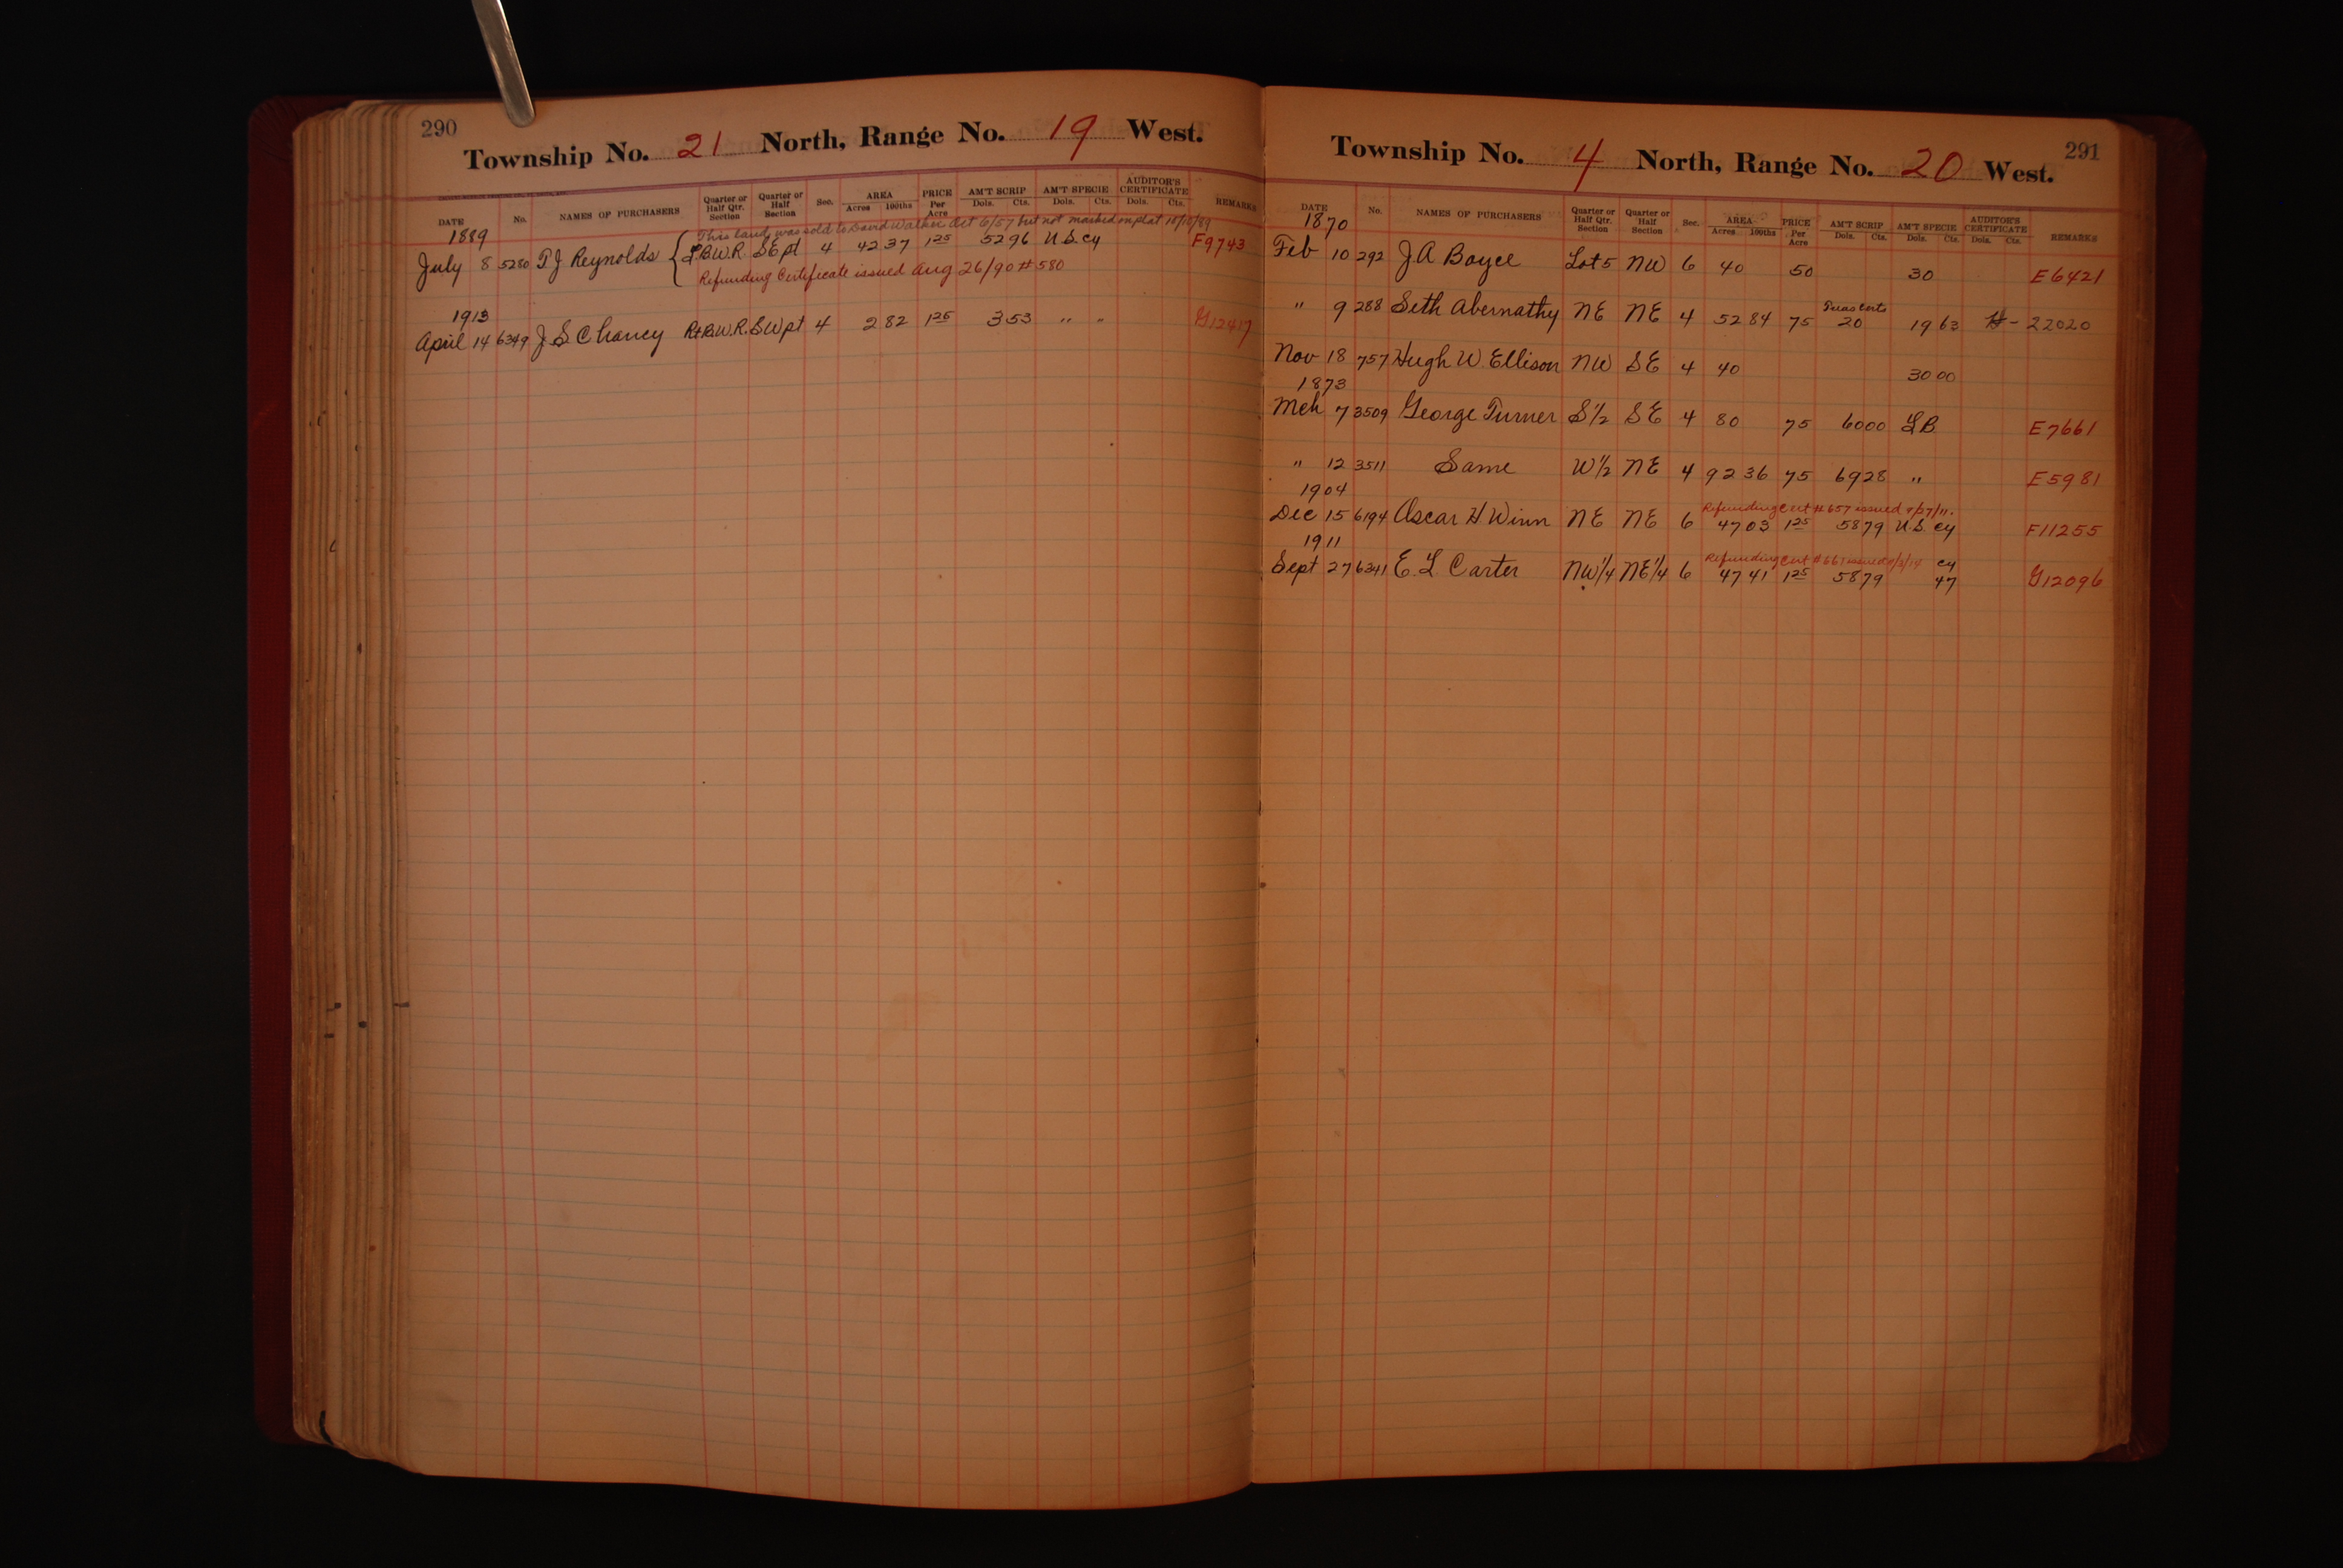 290
Township No. 21 North, Range No. 19 West.
DATE No. NAMES OF PURCHASERS Quarter or Half Qtr. Section Quarter or Half Section Sec. AREA Acres 100ths PRICE Per Acre AM'T SCRIP Dols. Cts. AM'T SPECIE Dols. Cts. AUDITOR'S CERTIFICATE Dols. Cts. REMARKS
1889 This land was sold to David Walker Oct 6/57 but not marked on plat 10/10/89
July 8 5280 T J Reynolds { L.B.W.R. SE pt 4 42 37 1 25 52 96 U.S. cy F9743
Refunding Certificate issued Aug 26/90 # 580
1913
April 14 6349 J. S. Chancy Rt.B.W.R. SW pt 4 2 82 1 25 3 53 " " G12417
291
Township No. 4 North, Range No. 20 West.
DATE No. NAMES OF PURCHASERS Quarter or Half Qtr. Section Quarter or Half Section Sec. AREA Acres 100ths PRICE Per Acre AM'T SCRIP Dols. Cts. AM'T SPECIE Dols. Cts. AUDITOR'S CERTIFICATE Dols. Cts. REMARKS
1870
Feb 10 292 J A Boyce Lot 5 NW 6 40 50 30 E6421
" 9 288 Seth Abernathy NE NE 4 52 84 75 20 19 63 22020
Nov 18 757 Hugh W. Ellison NW SE 4 40 30 00
1873
Mch 7 3509 George Turner S 1/2 SE 4 80 75 60 00 L B E7661
" 12 3511 Same W 1/2 NE 4 92 36 75 69 28 " E5981
1904 Refunding Cert # 657 issued 9/27/11.
Dec 15 6194 Oscar H Winn NE NE 6 47 03 1 25 58 79 U.S. cy F11255
1911 Refunding Cert
Sept 27 6341 E. L. Carter NW 1/4 NE 1/4 6 47 41 1 25 58 79 cy 47 G12096